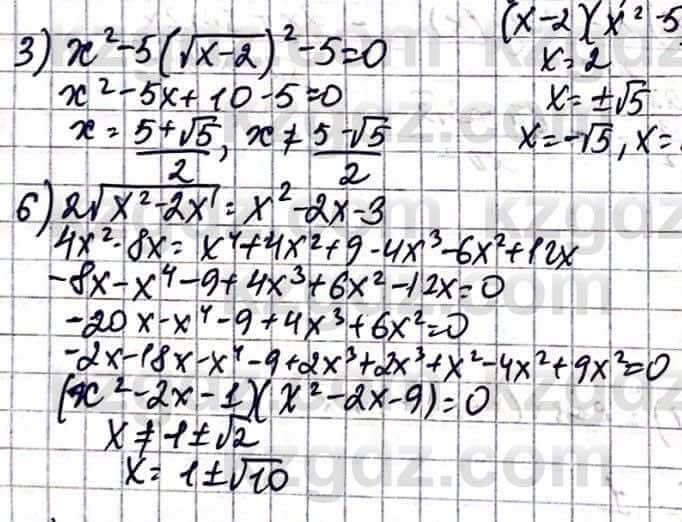 3) x²-5(√x-2)²-5=0
x²-5x+10-5=0
x = 5+√5/2, x ≠ 5-√5/2
6) 2√x²-2x = x²-2x-3
4x²-8x = x⁴+4x²+9-4x³-6x²+12x
-8x-x⁴-9+4x³+6x²-12x=0
-20x-x⁴-9+4x³+6x²=0
-2x-18x-x⁴-9+2x³+2x³+x²-4x²+9x²=0
(x²-2x-1)(x²-2x-9)=0
x ≠ 1±√2
x = 1±√10
(x-2)(x²-5
x=2
x=±√5
x=-√5, x=